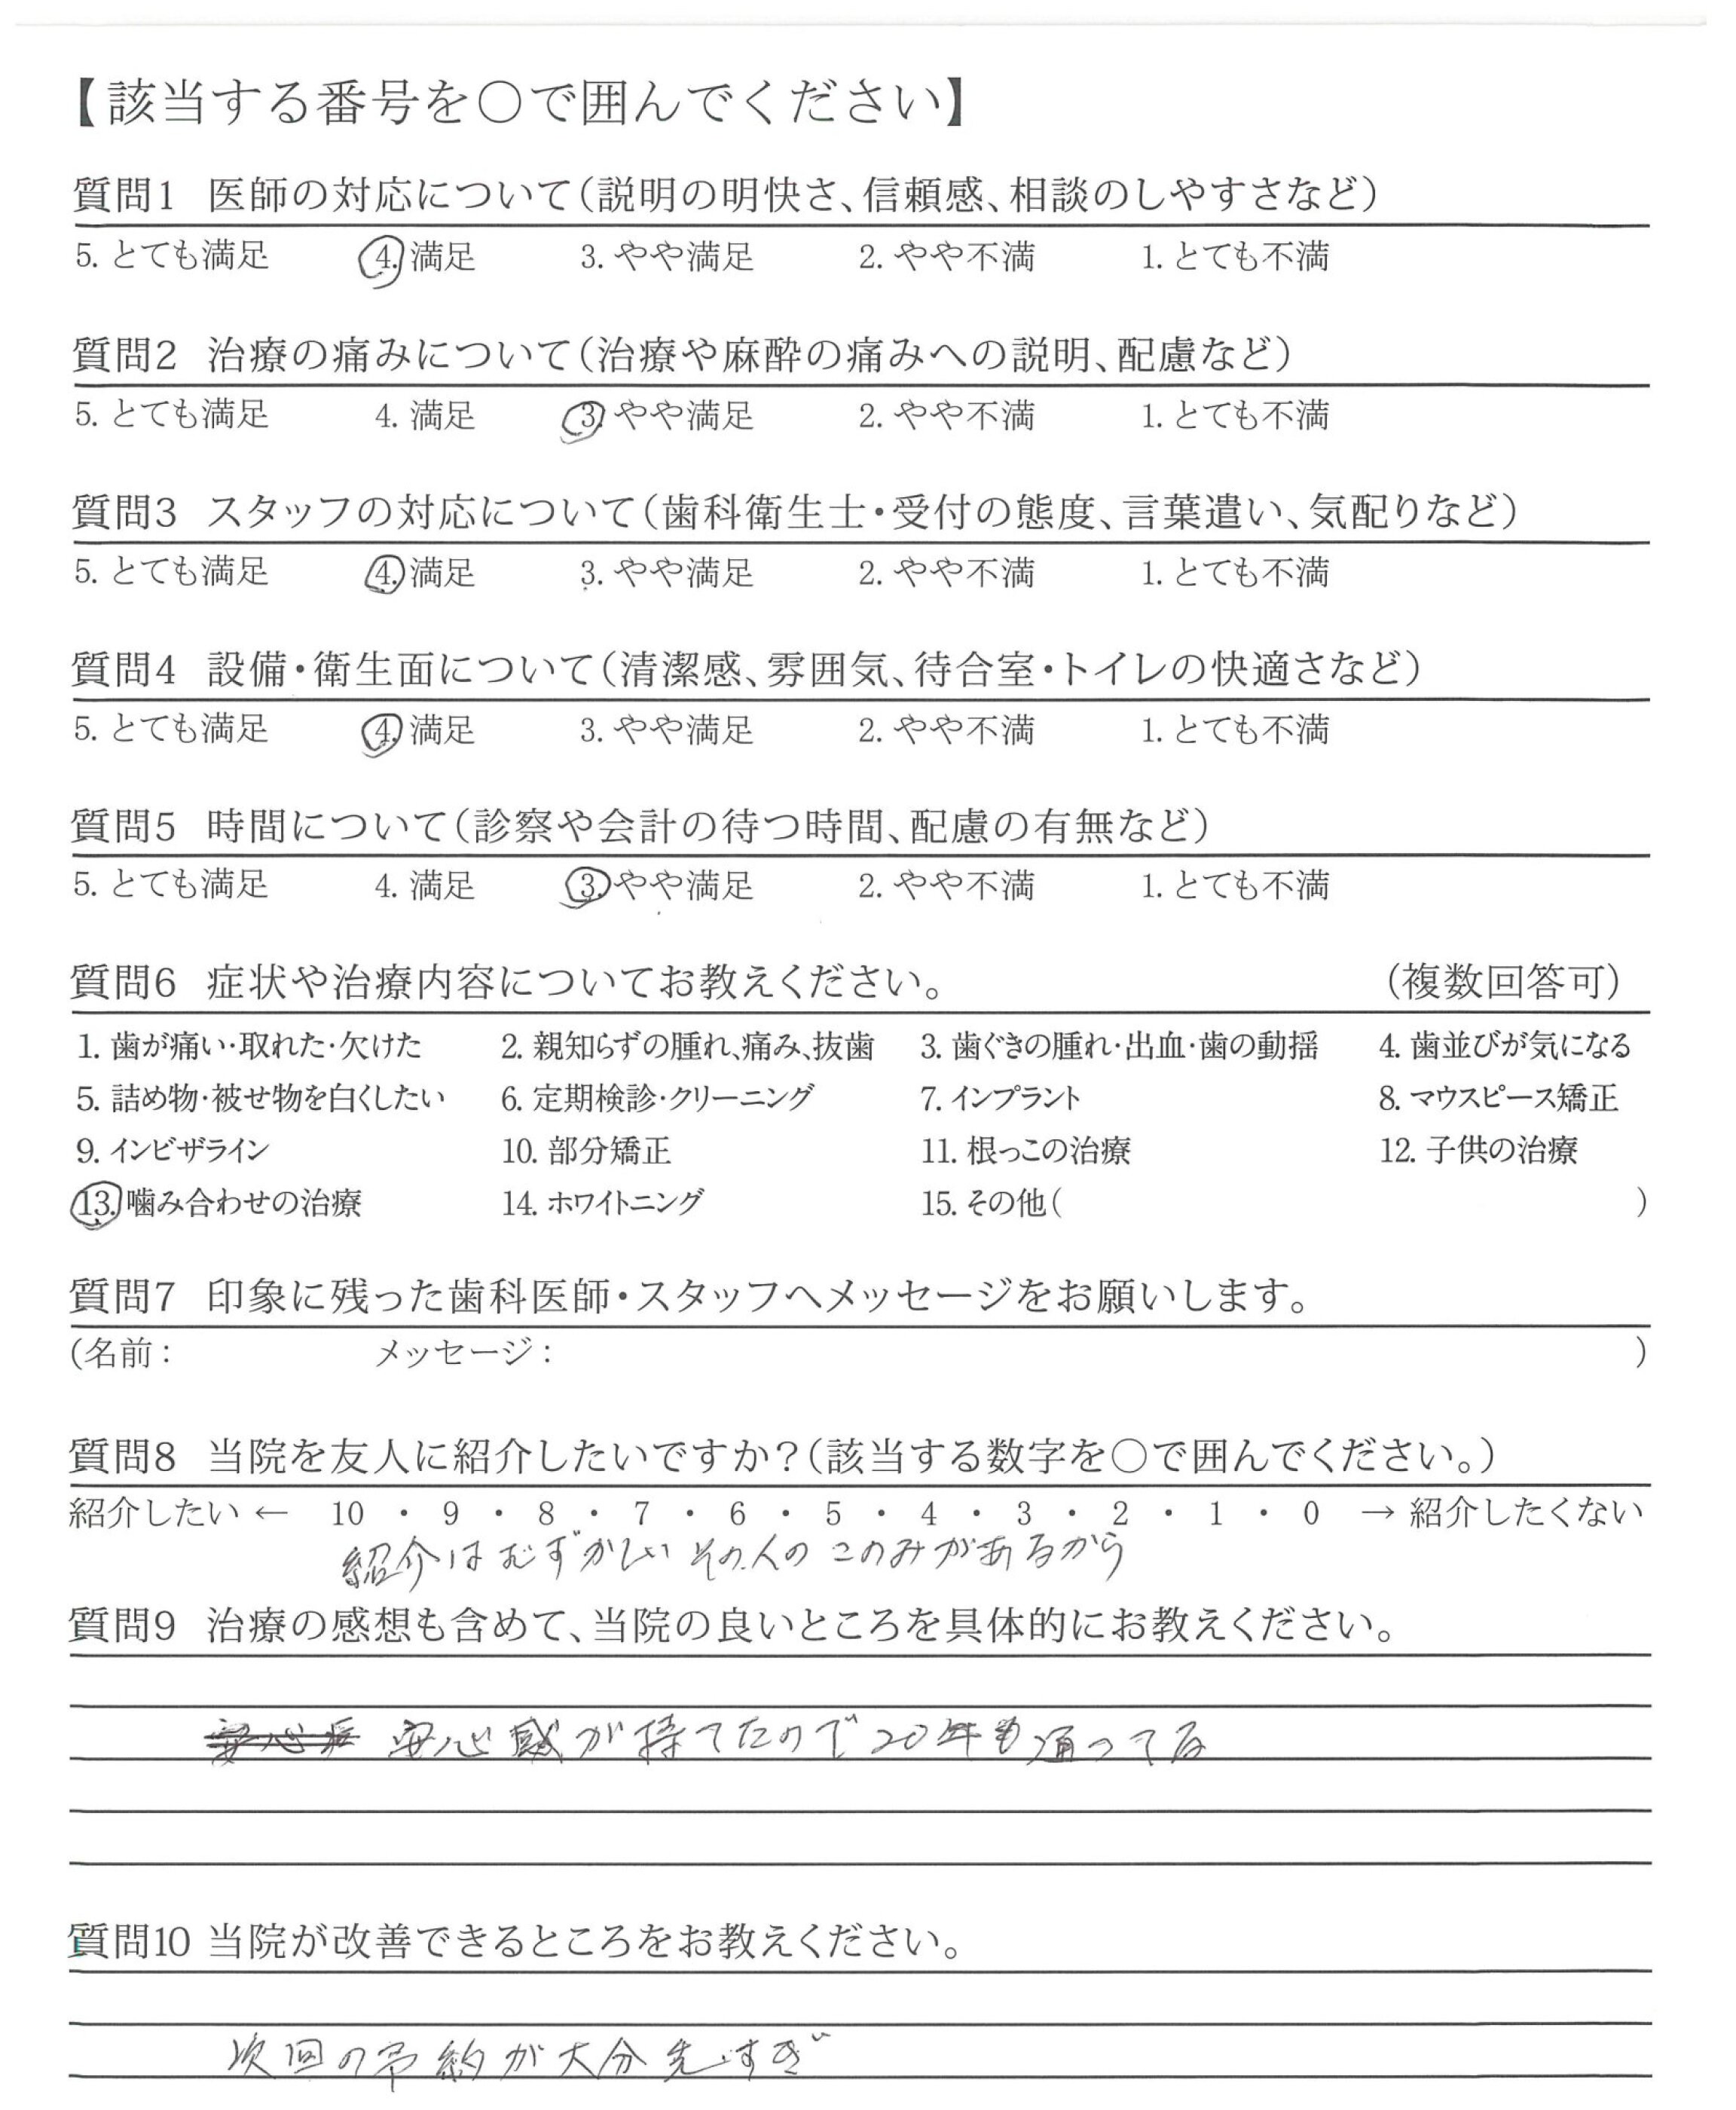 【該当する番号を○で囲んでください】
質問1 医師の対応について(説明の明快さ、信頼感、相談のしやすさなど)
5. とても満足 4. 満足 3. やや満足 2. やや不満 1. とても不満
質問2 治療の痛みについて(治療や麻酔の痛みへの説明、配慮など)
5. とても満足 4. 満足 3. やや満足 2. やや不満 1. とても不満
質問3 スタッフの対応について(歯科衛生士・受付の態度、言葉遣い、気配りなど)
5. とても満足 4. 満足 3. やや満足 2. やや不満 1. とても不満
質問4 設備・衛生面について(清潔感、雰囲気、待合室・トイレの快適さなど)
5. とても満足 4. 満足 3. やや満足 2. やや不満 1. とても不満
質問5 時間について(診察や会計の待つ時間、配慮の有無など)
5. とても満足 4. 満足 3. やや満足 2. やや不満 1. とても不満
質問6 症状や治療内容についてお教えください。 (複数回答可)
1. 歯が痛い・取れた・欠けた 2. 親知らずの腫れ、痛み、抜歯 3. 歯ぐきの腫れ・出血・歯の動揺 4. 歯並びが気になる
5. 詰め物・被せ物を白くしたい 6. 定期検診・クリーニング 7. インプラント 8. マウスピース矯正
9. インビザライン 10. 部分矯正 11. 根っこの治療 12. 子供の治療
13. 噛み合わせの治療 14. ホワイトニング 15. その他( )
質問7 印象に残った歯科医師・スタッフへメッセージをお願いします。
(名前: メッセージ: )
質問8 当院を友人に紹介したいですか?(該当する数字を○で囲んでください。)
紹介したい ← 10 ・ 9 ・ 8 ・ 7 ・ 6 ・ 5 ・ 4 ・ 3 ・ 2 ・ 1 ・ 0 → 紹介したくない
紹介はむずかしい その人の このみがあるから
質問9 治療の感想も含めて、当院の良いところを具体的にお教えください。
安心感が持てたので20年も通ってる
質問10 当院が改善できるところをお教えください。
次回の予約が大分先すぎ